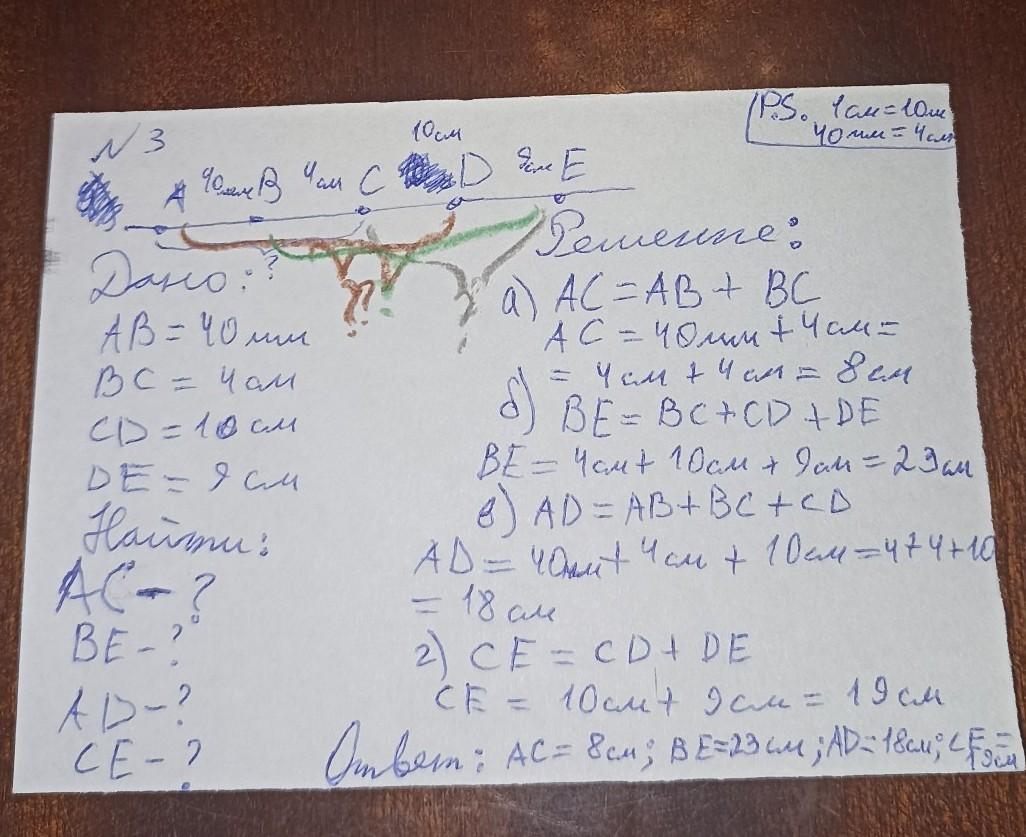 N3
P.S. 1см=10м
40мм=4см
10см
A 40мм B 4см C D 9см E
?
Дано:
AB = 40мм
BC = 4см
CD = 10 см
DE = 9 см
Найти:
AC - ?
BE - ?
AD - ?
CE - ?
Решение:
а) AC = AB + BC
AC = 40мм + 4см =
= 4см + 4см = 8см
б) BE = BC + CD + DE
BE = 4см + 10см + 9см = 23см
в) AD = AB + BC + CD
AD = 40мм + 4см + 10см = 4+4+10
= 18 см
г) CE = CD + DE
CE = 10см + 9см = 19см
Ответ: AC = 8см; BE=23см; AD=18см; CE =
19см